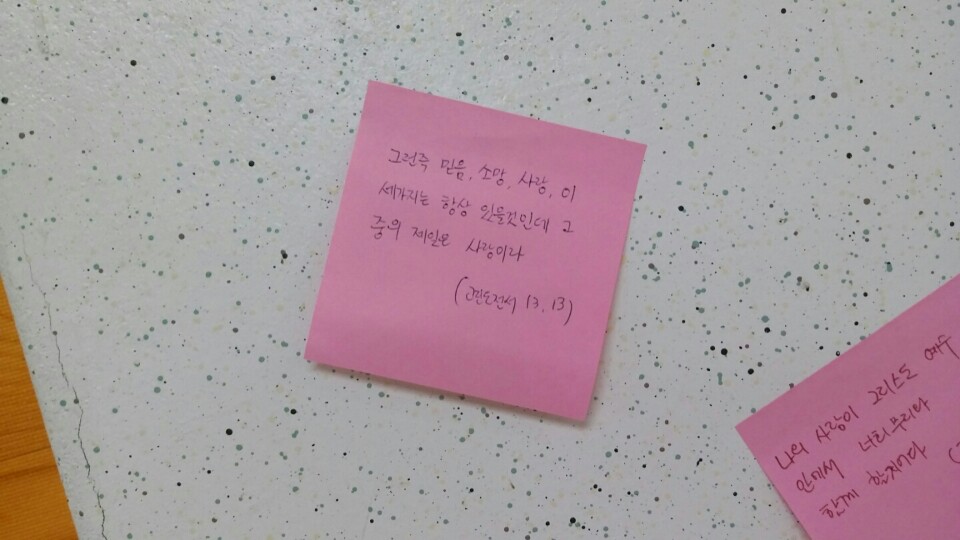 그런즉 믿음, 소망, 사랑, 이
세가지는 항상 있을것인데 그
중의 제일은 사랑이라
(고린도전서 13, 13)
나의 사랑이 그리스도 예수
안에서 너희무리와
함께 할지어다